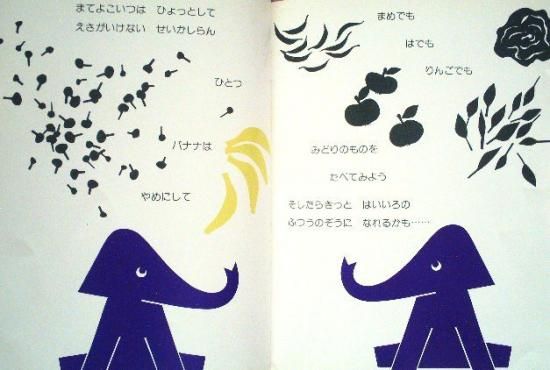 まてよこいつは　ひょっとして
えさがいけない　せいかしらん
ひとつ
バナナは
やめにして
まめでも
はでも
りんごでも
みどりのものを
たべてみよう
そしたらきっと　はいいろの
ふつうのぞうに　なれるかも……